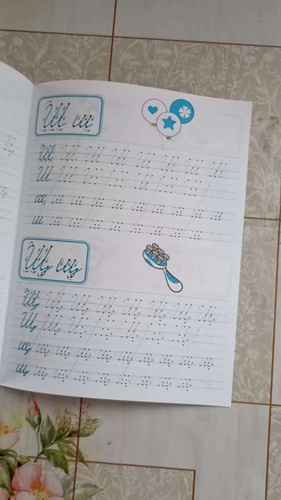 Ш ш
Ш Ш Ш Ш Ш Ш Ш Ш
Ш Ш Ш Ш Ш Ш Ш
ш ш ш ш ш ш ш ш
ш ш ш ш ш ш ш ш
Щ щ
Щ Щ Щ Щ Щ Щ Щ Щ
Щ Щ Щ Щ Щ Щ Щ
щ щ щ щ щ щ щ щ
щ щ щ щ щ щ щ